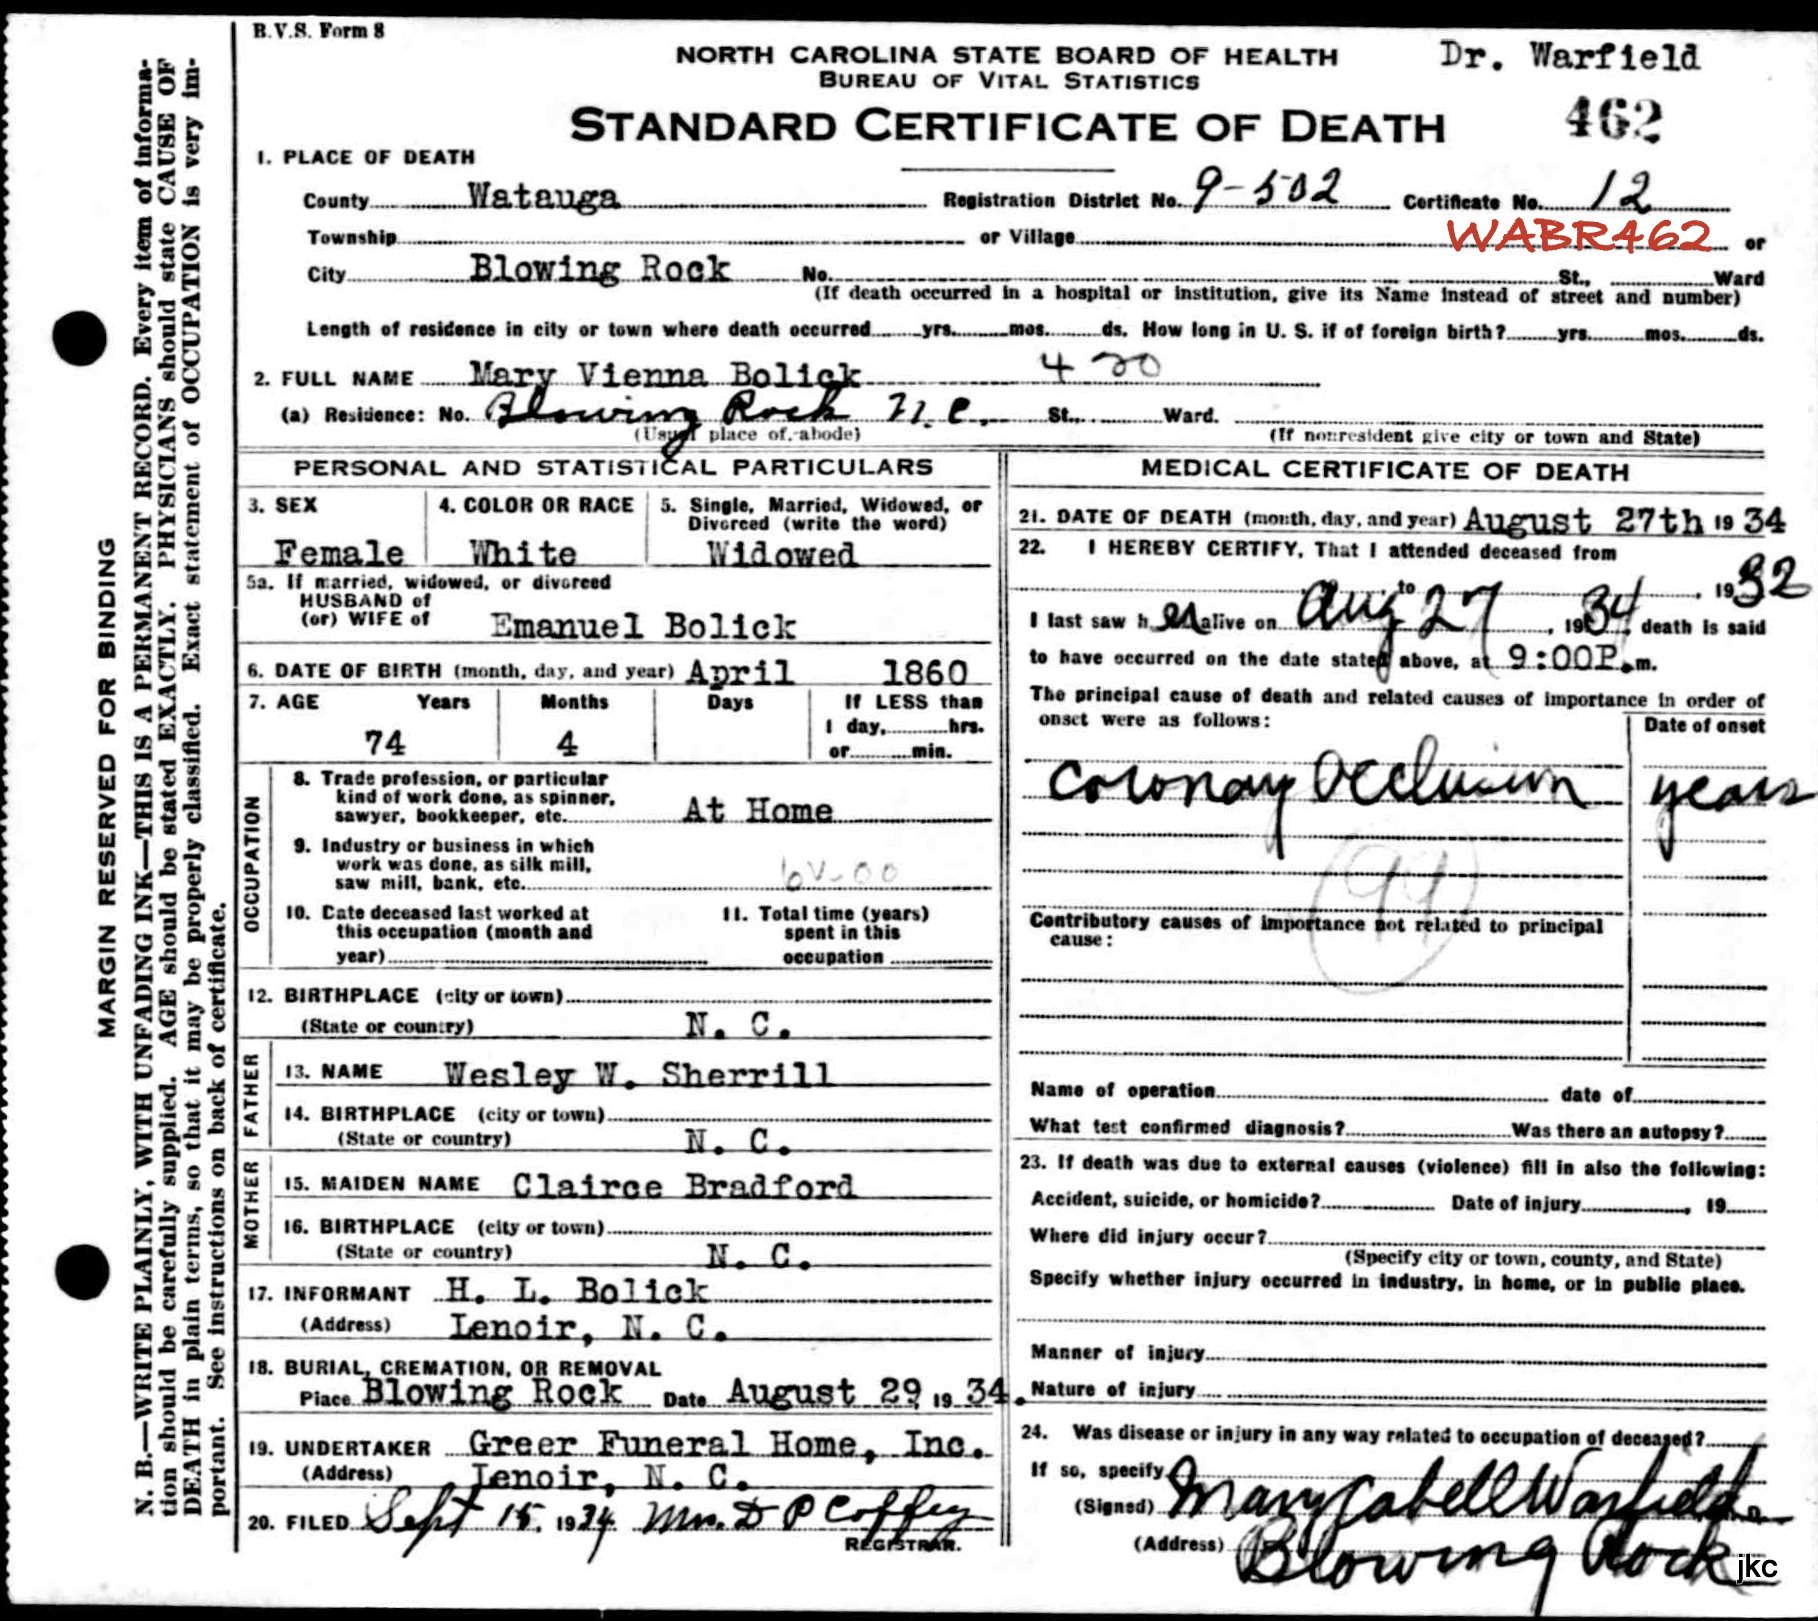 B.V.S. Form 8
NORTH CAROLINA STATE BOARD OF HEALTH
Dr. Warfield
BUREAU OF VITAL STATISTICS
STANDARD CERTIFICATE OF DEATH
462
1. PLACE OF DEATH
County Watauga Registration District No. 9-502 Certificate No. 12
WABR462
Township or Village or
City Blowing Rock No. St., Ward
(If death occurred in a hospital or institution, give its Name instead of street and number)
Length of residence in city or town where death occurred yrs. mos. ds. How long in U. S. if of foreign birth? yrs. mos. ds.
2. FULL NAME Mary Vienna Bolick 420
(a) Residence: No. Blowing Rock N.C. St., Ward.
(Usual place of abode) (If nonresident give city or town and State)
PERSONAL AND STATISTICAL PARTICULARS
3. SEX 4. COLOR OR RACE 5. Single, Married, Widowed, or
Divorced (write the word)
Female White Widowed
5a. If married, widowed, or divorced
HUSBAND of
(or) WIFE of Emanuel Bolick
6. DATE OF BIRTH (month, day, and year) April 1860
7. AGE Years Months Days If LESS than
1 day, hrs.
74 4 or min.
OCCUPATION
8. Trade profession, or particular
kind of work done, as spinner,
sawyer, bookkeeper, etc. At Home
9. Industry or business in which
work was done, as silk mill,
saw mill, bank, etc.
10. Date deceased last worked at
this occupation (month and
year)
11. Total time (years)
spent in this
occupation
12. BIRTHPLACE (city or town)
(State or country) N. C.
FATHER
13. NAME Wesley W. Sherrill
14. BIRTHPLACE (city or town)
(State or country) N. C.
MOTHER
15. MAIDEN NAME Clairce Bradford
16. BIRTHPLACE (city or town)
(State or country) N. C.
17. INFORMANT H. L. Bolick
(Address) Lenoir, N. C.
18. BURIAL, CREMATION, OR REMOVAL
Place Blowing Rock Date August 29 19 34.
19. UNDERTAKER Greer Funeral Home, Inc.
(Address) Lenoir, N. C.
20. FILED Sept 15, 1934 Mrs. D P Coffey
REGISTRAR.
MEDICAL CERTIFICATE OF DEATH
21. DATE OF DEATH (month, day, and year) August 27th 19 34
22. I HEREBY CERTIFY, That I attended deceased from
to , 1932
I last saw her alive on Aug 27, 1934, death is said
to have occurred on the date stated above, at 9:00P.m.
The principal cause of death and related causes of importance in order of
onset were as follows: Date of onset
Coronay Occlusion years
99
Contributory causes of importance not related to principal
cause:
Name of operation date of
What test confirmed diagnosis? Was there an autopsy?
23. If death was due to external causes (violence) fill in also the following:
Accident, suicide, or homicide? Date of injury , 19
Where did injury occur?
(Specify city or town, county, and State)
Specify whether injury occurred in industry, in home, or in public place.
Manner of injury
Nature of injury
24. Was disease or injury in any way related to occupation of deceased?
If so, specify
(Signed) Mary Cabell Warfield
(Address) Blowing Rock
jkc
MARGIN RESERVED FOR BINDING
N. B.—WRITE PLAINLY, WITH UNFADING INK—THIS IS A PERMANENT RECORD. Every item of informa-
tion should be carefully supplied. AGE should be stated EXACTLY. PHYSICIANS should state CAUSE OF
DEATH in plain terms, so that it may be properly classified. Exact statement of OCCUPATION is very im-
portant. See instructions on back of certificate.